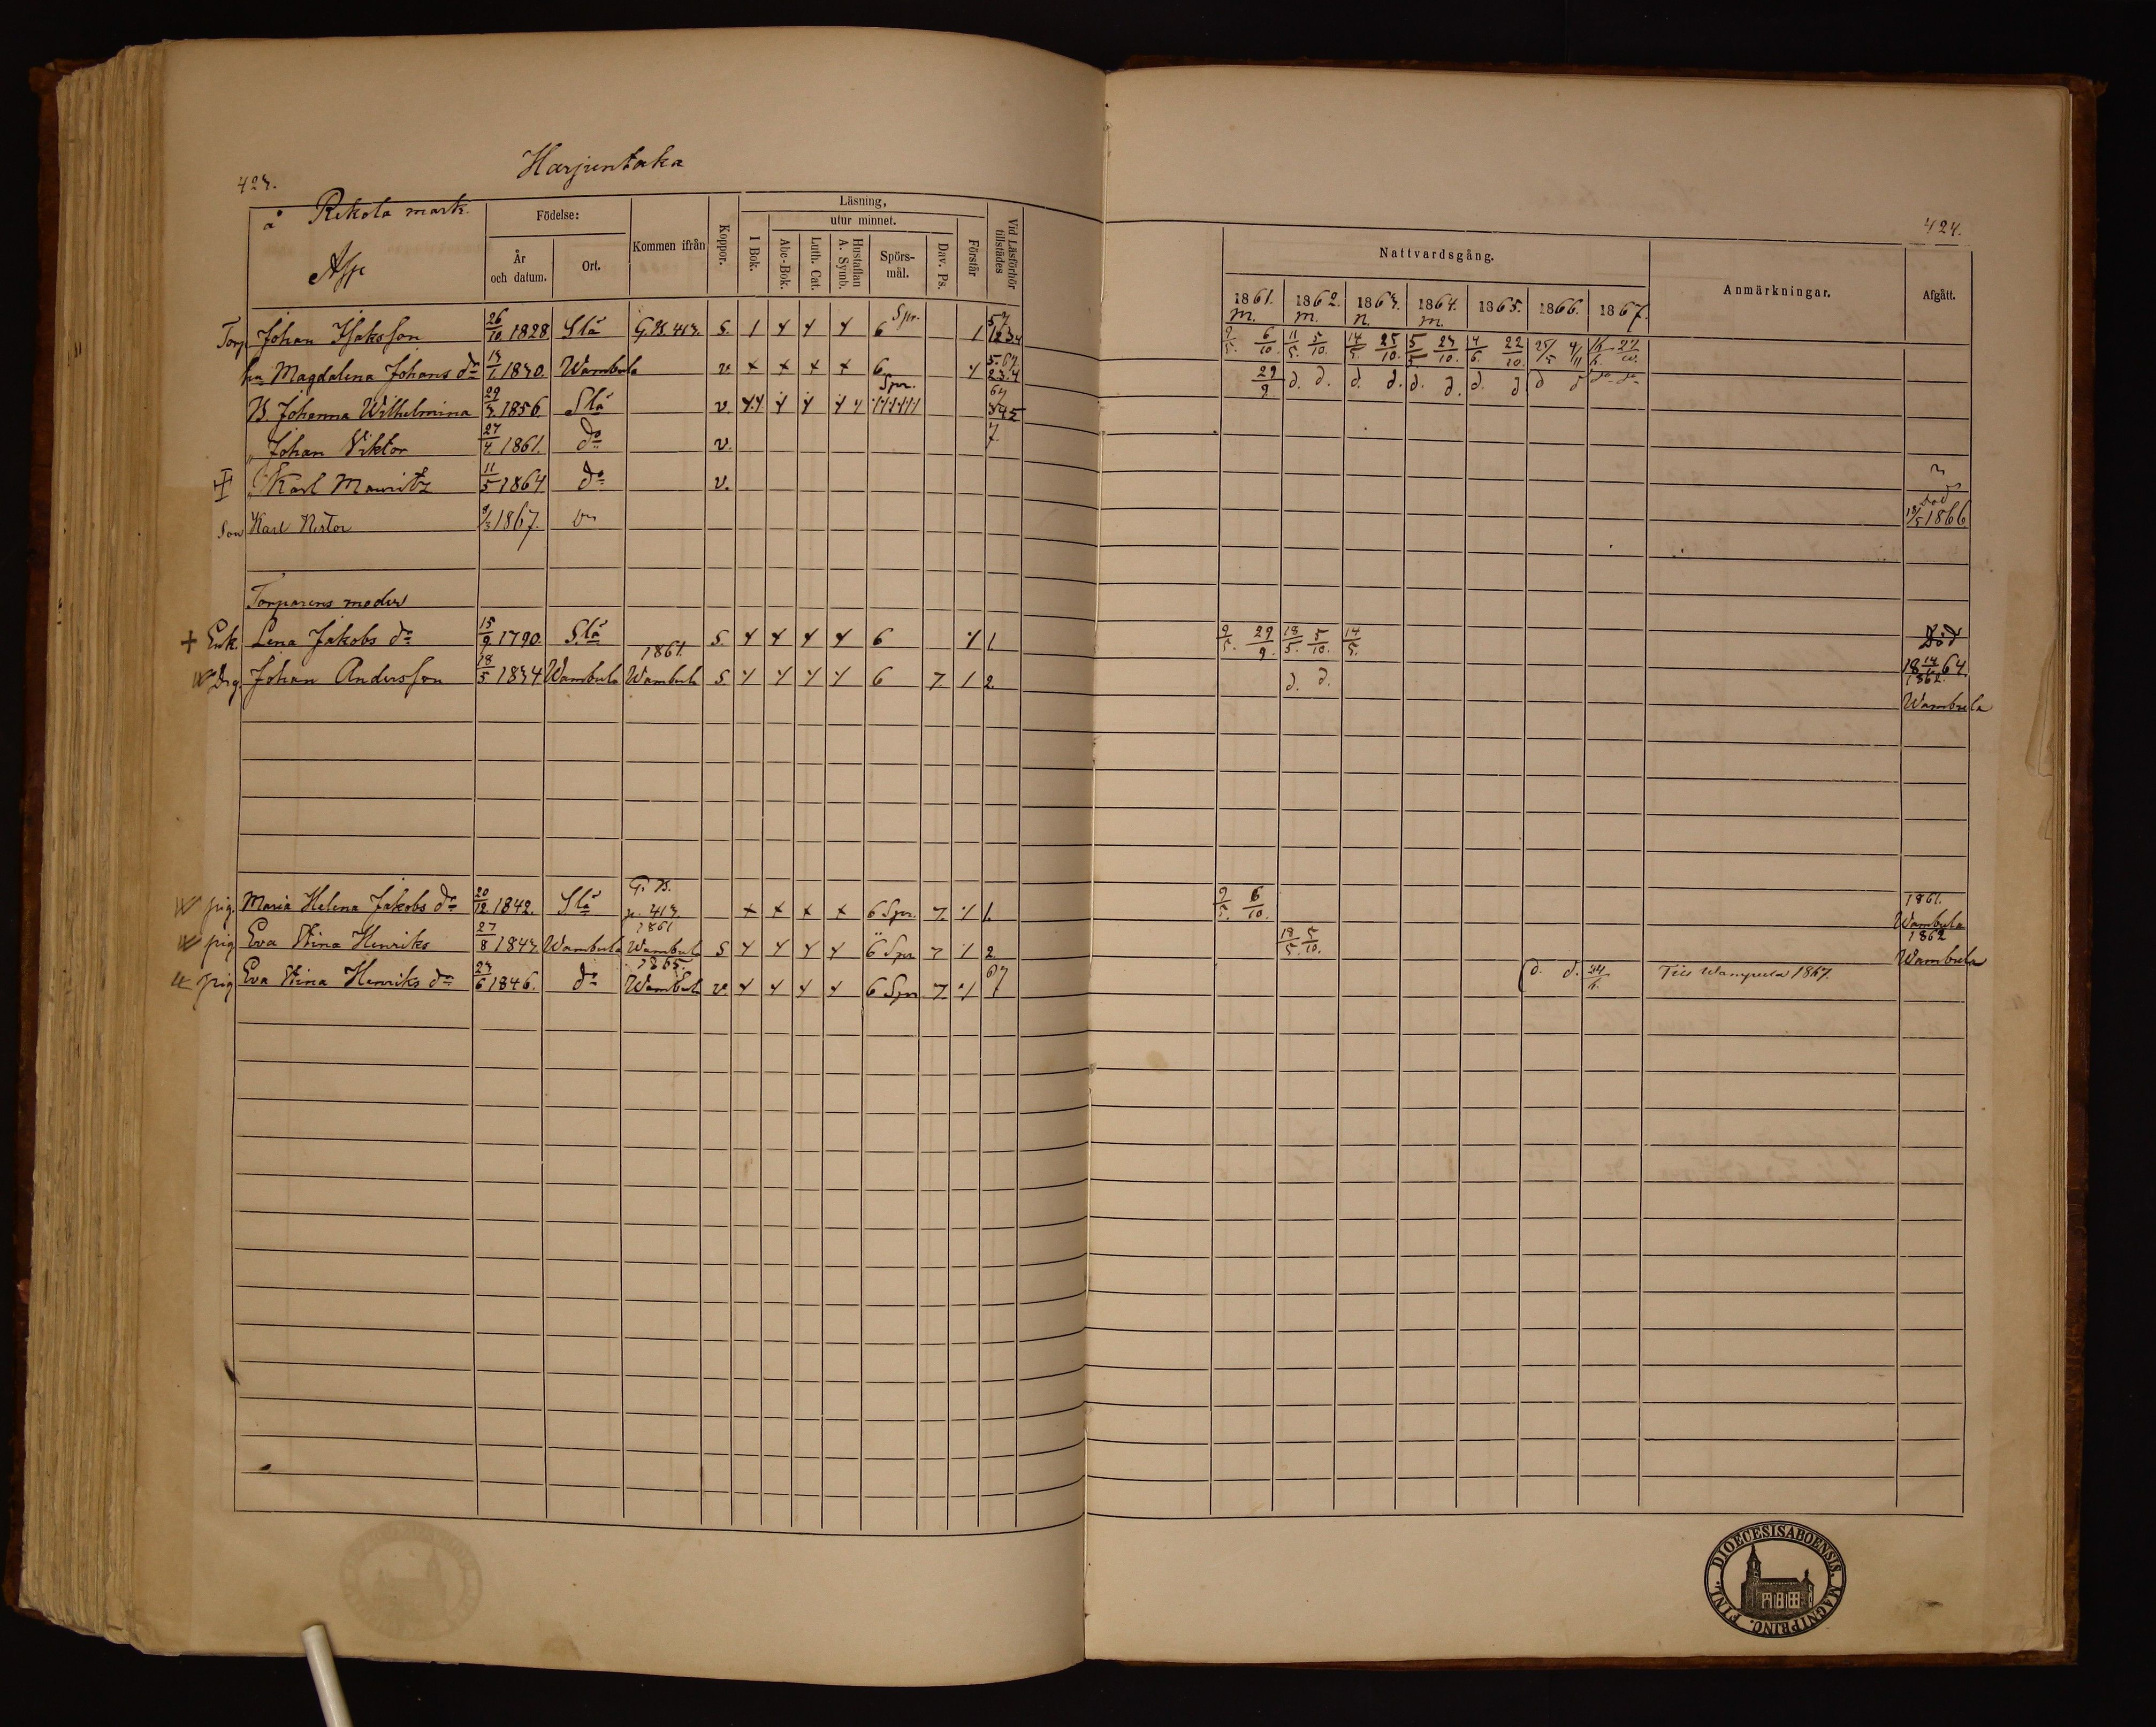 Harjuntaka
424.
å Rekola mark.
Asp
Födelse:
År och datum.
Ort.
Kommen ifrån
Koppor.
Läsning,
I Bok.
utur minnet.
Abc-Bok.
Luth. Cat.
Hustaflan A. Symb.
Spörs-mål.
Dav. Ps.
Förstår
Vid Läsförhör tillstädes
Torp Johan Isaksson 26/10 1828 Slä G. B. 413. S. 1 6 Spr. 1
hu Magdalena Johans dr 1830. Wambula v 6
B. Johanna Wilhelmina 29/3 1856. Slä v. Spr.
" Johan Viktor 27/4 1861. do v. 7
" Karl Mauritz 11/5 1864 do v.
Son Karl Nestor 1867.
Torparens moder
+ Enk. Lena Jakobs dr 15/9 1790 Slä S. 6 1.
Drg. Johan Andersson 18/5 1834 Wambula 1861. Wambula S. 6 7. 1 2.
pig. Maria Helena Jakobs dr 20/12 1842. Slä G. B. p. 413. 6 Spr. 7. 1.
pig Eva Stina Henriks 27/8 1843 Wambula 1861 Wambula S 6 Spr 7 2
pig Eva Stina Henriks dr 23/6 1846. do 1865. Wambula v 6 Spr 7. 67
424.
Nattvardsgång.
Anmärkningar.
Afgått.
1861. 1862. 1863. 1864. 1865. 1866. 1867.
m. m. n. m.
9/5. 6/10. 11/5. 5/10. 14/5. 25/10. 5/5 23/10. 4/6. 22/10. 25/5 4/11
29/9. d. d. d. d. d. d. d. d d d
död
18/5 1866
9/5. 29/9. 18/5. 5/10. 14/5. Död
18 14/4 64.
d. d. 1862.
Wambula
9/5. 6/10. 1861.
Wambula
18/5. 5/10. 1862
Wambula
d. d. Till Wampula 1867.
DIOECESIS ABOENSIS. MAGNI PRINC. FINL.